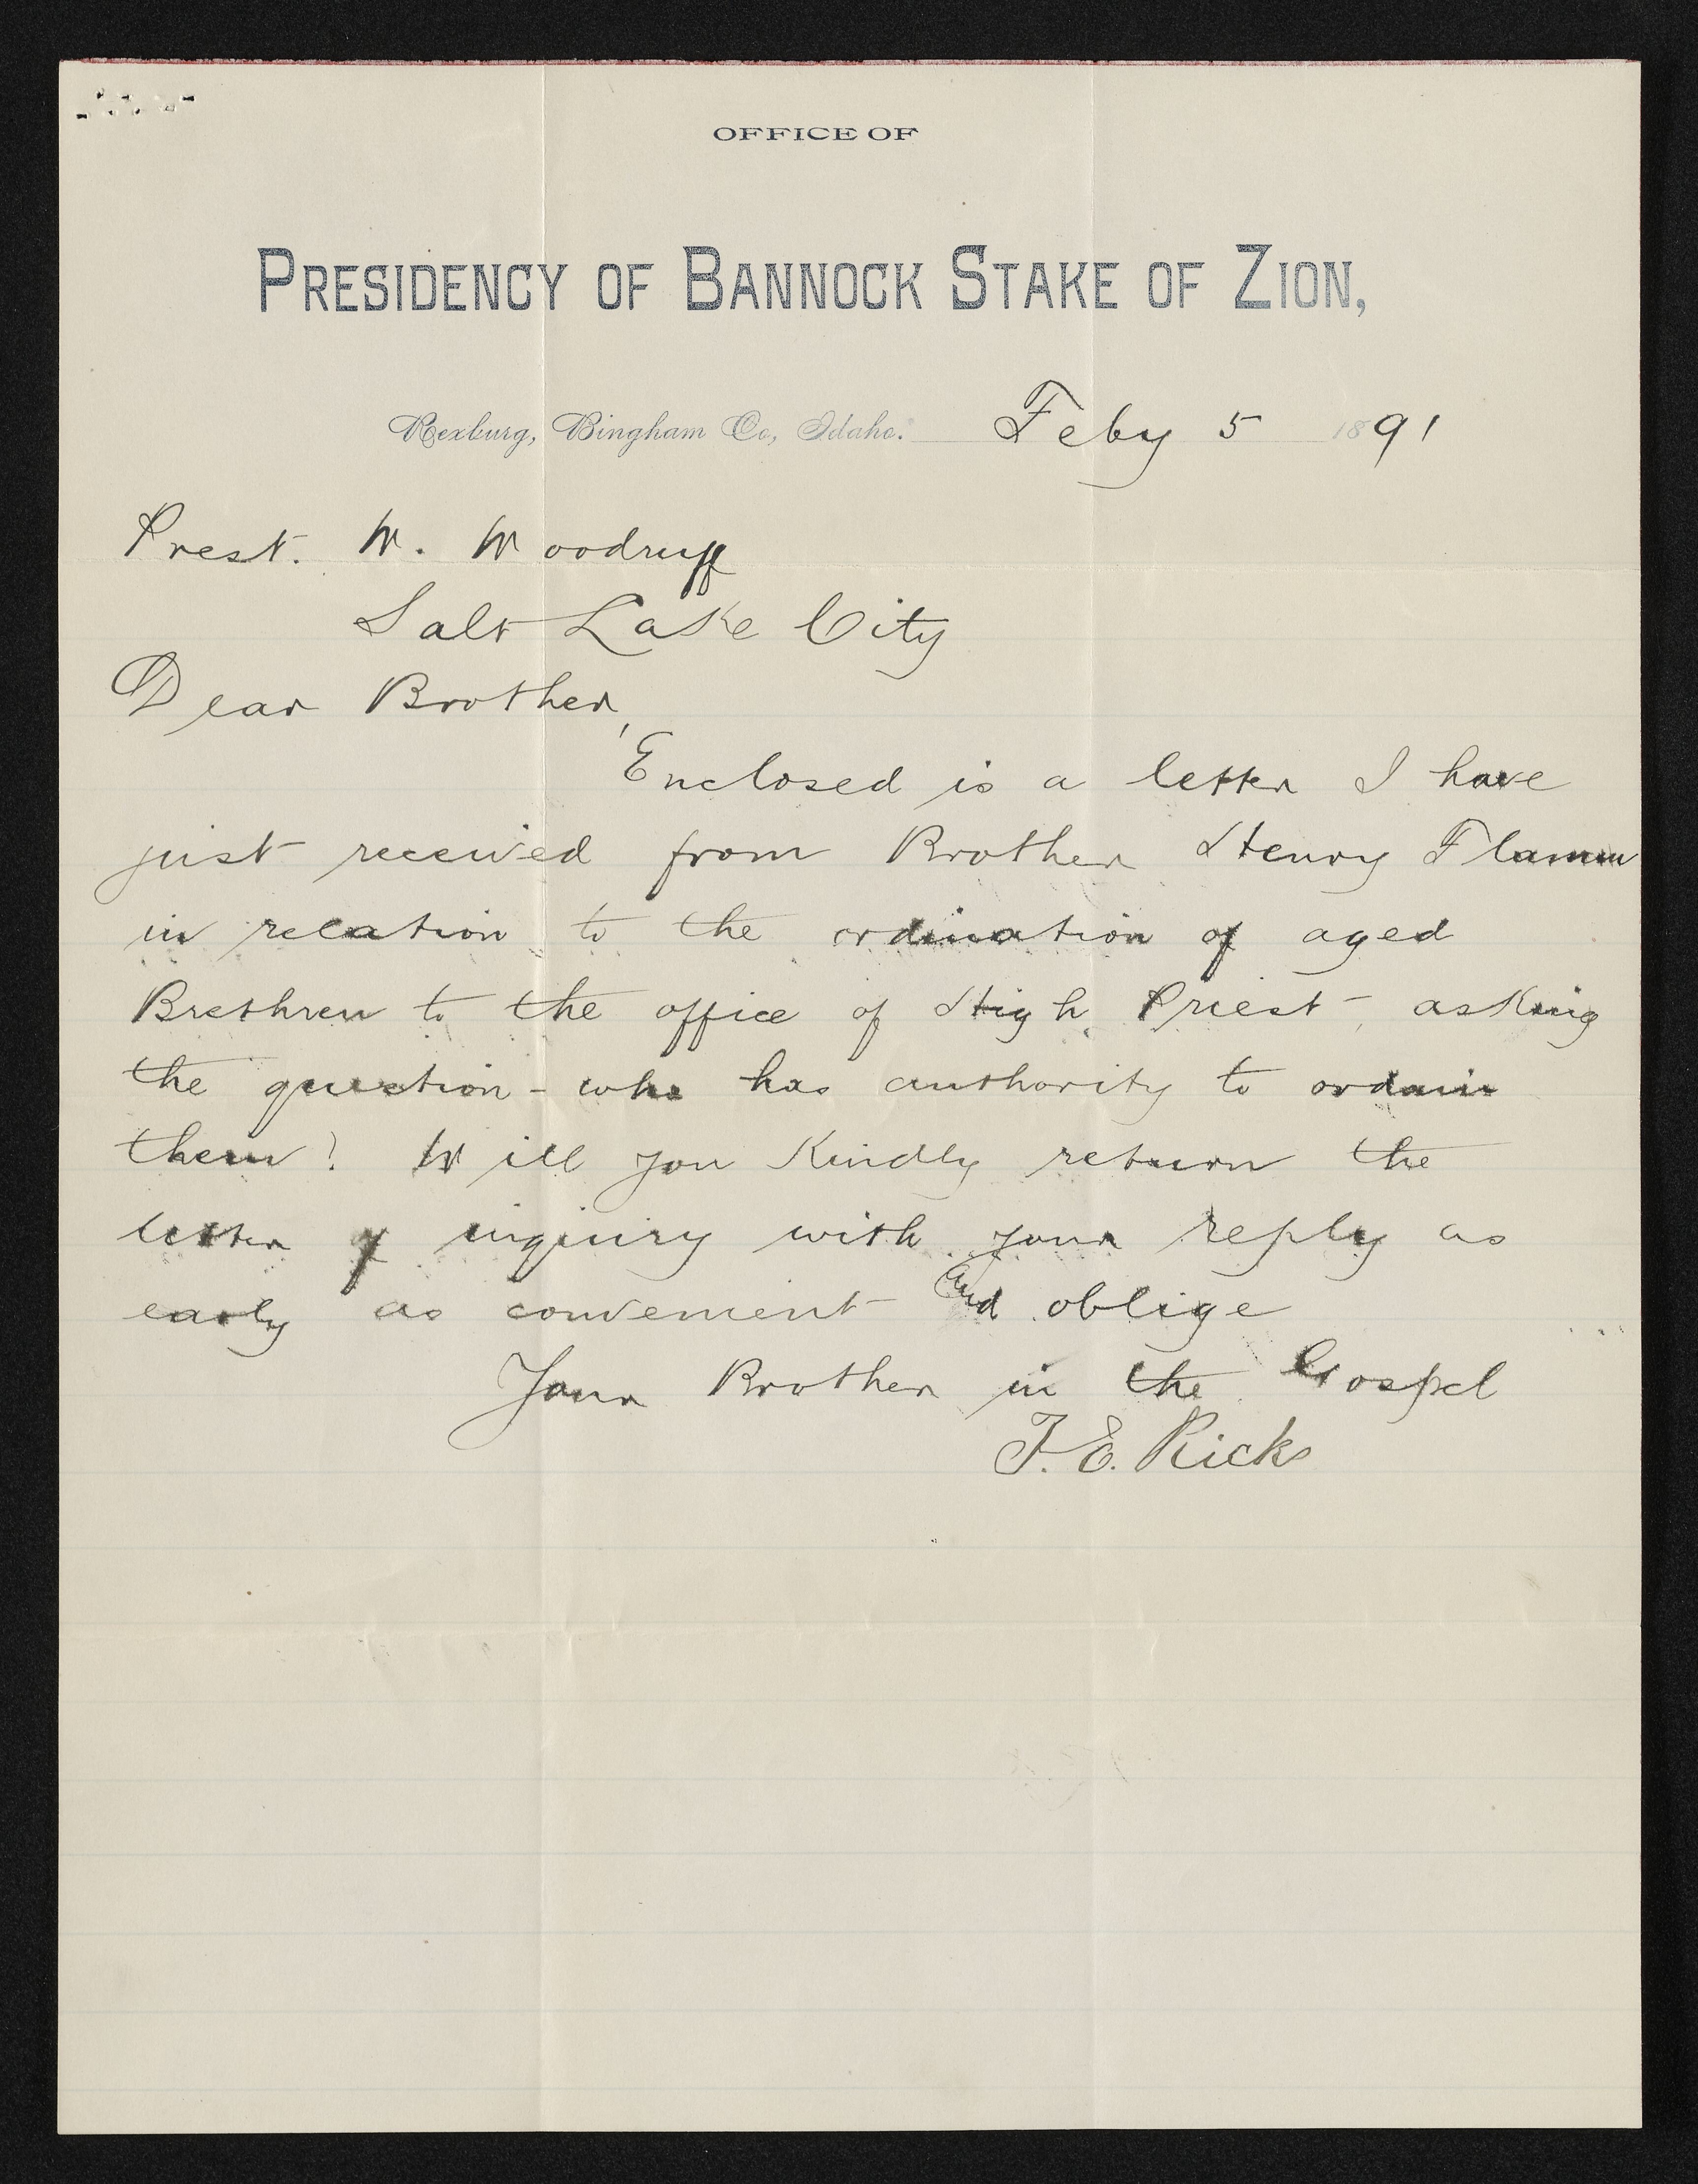 OFFICE OF
PRESIDENCY OF BANNOCK STAKE OF ZION,
Rexburg, Bingham Co, Idaho. Feby 5 1891
Prest. W. Woodruff
Salt Lake City
Dear Brother,
Enclosed is a letter I have
just received from Brother Henry Flamm
in relation to the ordination of aged
Brethren to the office of High Priest, asking
the question - who has authority to ordain
them? Will you Kindly return the
letter of inquiry with your reply as
early as convenient and oblige
Your Brother in the Gospel
T. E. Ricks